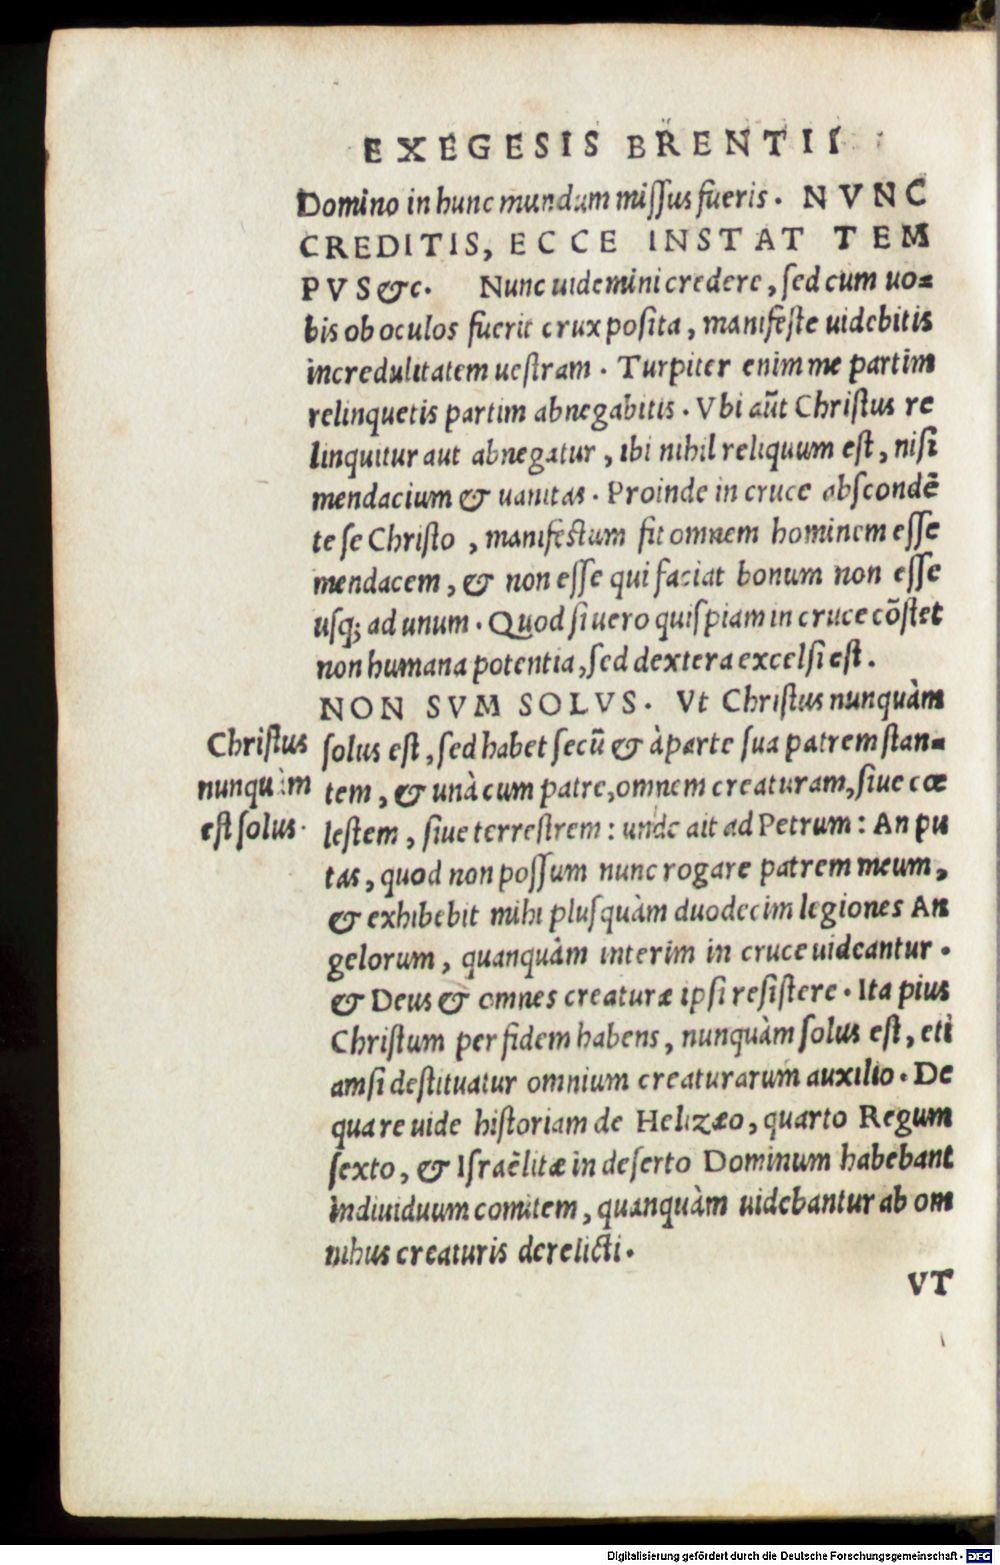 EXEGESIS BRENTII
Domino in hunc mundum missus fueris. NVNC
CREDITIS, ECCE INSTAT TEM
PVS &c. Nunc uidemini credere, sed cum uo=
bis ob oculos fuerit crux posita, manifeste uidebitis
incredulitatem uestram. Turpiter enim me partim
relinquetis partim abnegabitis. Vbi aūt Christus re
linquitur aut abnegatur, ibi nihil reliquum est, nisi
mendacium & uanitas. Proinde in cruce abscondē
te se Christo, manifestum fit omnem hominem esse
mendacem, & non esse qui faciat bonum non esse
usq; ad unum. Quod si uero quispiam in cruce cōstet
non humana potentia, sed dextera excelsi est.
NON SVM SOLVS. Vt Christus nunquàm
Christus
nunquàm
est solus.
solus est, sed habet secū & à parte sua patrem stan=
tem, & unà cum patre, omnem creaturam, siue cœ
lestem, siue terrestrem: unde ait ad Petrum: An pu
tas, quod non possum nunc rogare patrem meum,
& exhibebit mihi plusquàm duodecim legiones An
gelorum, quanquàm interim in cruce uideantur.
& Deus & omnes creaturæ ipsi resistere. Ita pius
Christum per fidem habens, nunquàm solus est, eti
amsi destituatur omnium creaturarum auxilio. De
qua re uide historiam de Helizæo, quarto Regum
sexto, & Israëlitæ in deserto Dominum habebant
indiuiduum comitem, quanquàm uidebantur ab om
nibus creaturis derelicti.
VT
Digitalisierung gefördert durch die Deutsche Forschungsgemeinschaft - DFG